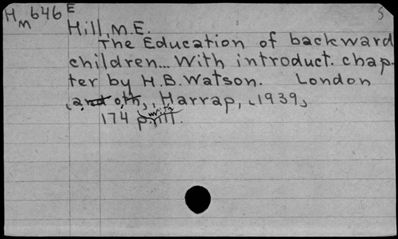 Hm646E 5
Hill, M.E.
The Education of backward
children... With introduct. chap-
ter by H.B. Watson. London
, and oth, , Harrap, , 1939,
174 p.